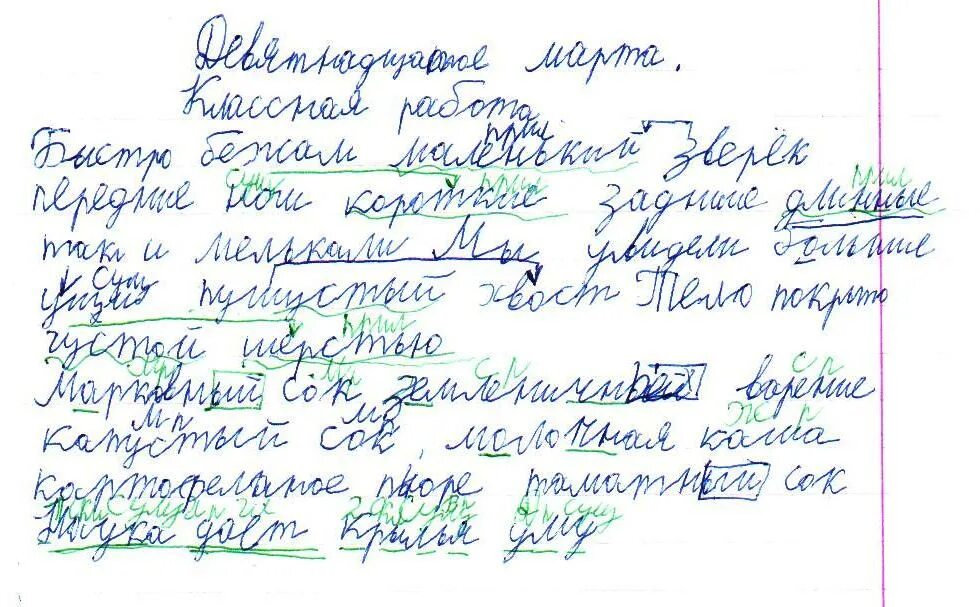 Девятнадцатое марта.
Классная работа
прил
Быстро бежал маленький зверёк
сущ прил прил
передние ноги короткие задние длинные
так и мелькали Мы увидели большие
сущ
пушистый хвост Тело покрыто
прил
густой шерстью
м р с р с р
Марковный сок земленичный варение
м р м р ж р
капустый сок, молочная каша
картофельное пюре таматный сок
сущ гл сущ сущ
Наука дает крылья уму